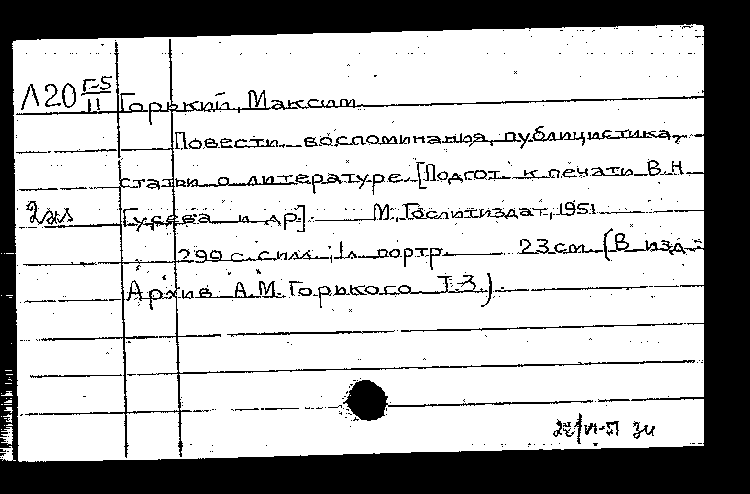 Л20 Г-5/11 Горький, Максим
Повести воспоминания, публицистика,
статьи о литературе. [Подгот. к печати В.Н.
2экз Гусева и др]. М., Гослитиздат, 1951
299 с. с илл.; 1л портр. 23см. (В изд-
Архив А.М. Горького Т.3.)
VI-51